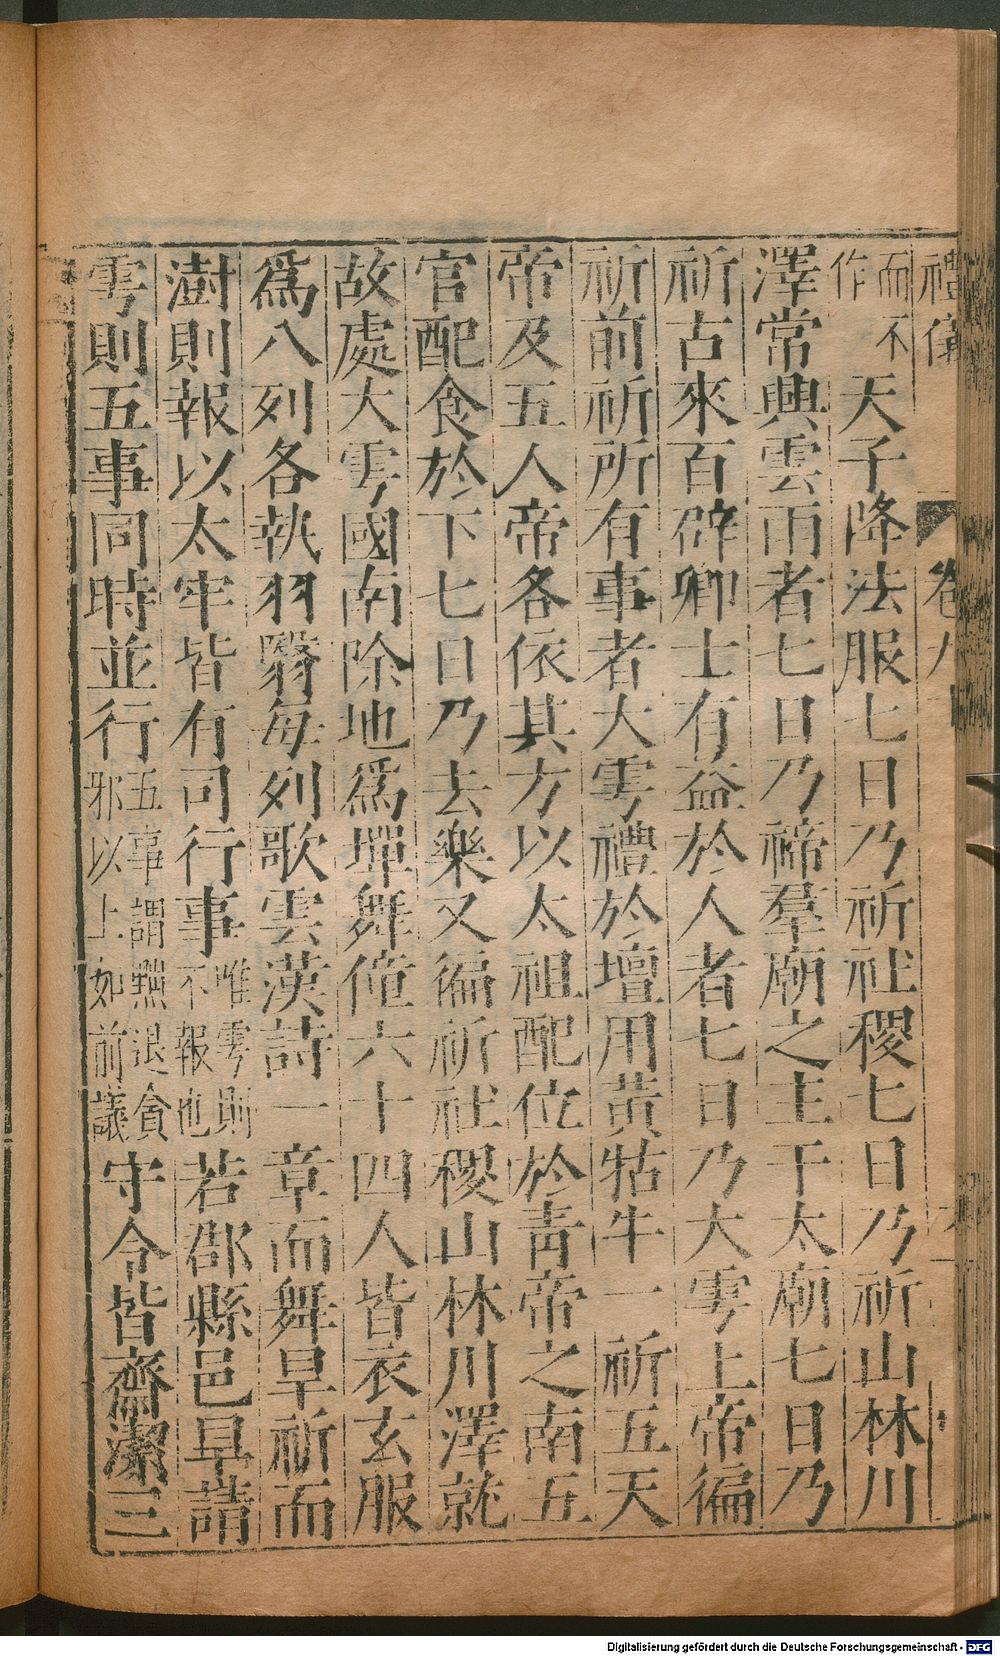 禮儀 卷八十
而不作天子降法服七日乃祈社稷七日乃祈山林川
澤常興雲雨者七日乃禘羣廟之主于太廟七日乃
祈古來百辟卿士有益於人者七日乃大雩上帝徧
祈前祈所有事者大雩禮於壇用黃牯牛一祈五天
帝及五人帝各依其方以太祖配位於青帝之南五
官配食於下七日乃去樂又徧祈社稷山林川澤就
故處大雩國南除地爲墠舞僮六十四人皆衣玄服
爲八列各執羽翳每列歌雲漢詩一章而舞旱祈而
澍則報以太牢皆有司行事唯雩則不報也若郡縣邑旱請
雩則五事同時並行五事謂黜退貪邪以上如前議守令皆齋潔三
Digitalisierung gefördert durch die Deutsche Forschungsgemeinschaft - DFG